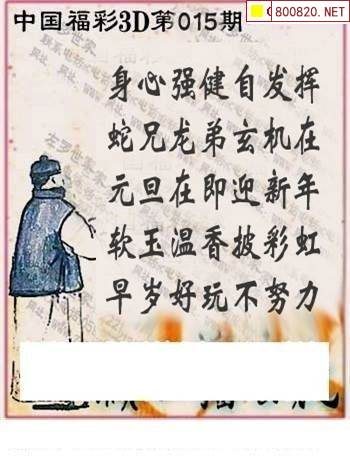 中国福彩3D第015期
800820.NET
身心强健自发挥
蛇兄龙弟玄机在
元旦在即迎新年
软玉温香披彩虹
早岁好玩不努力